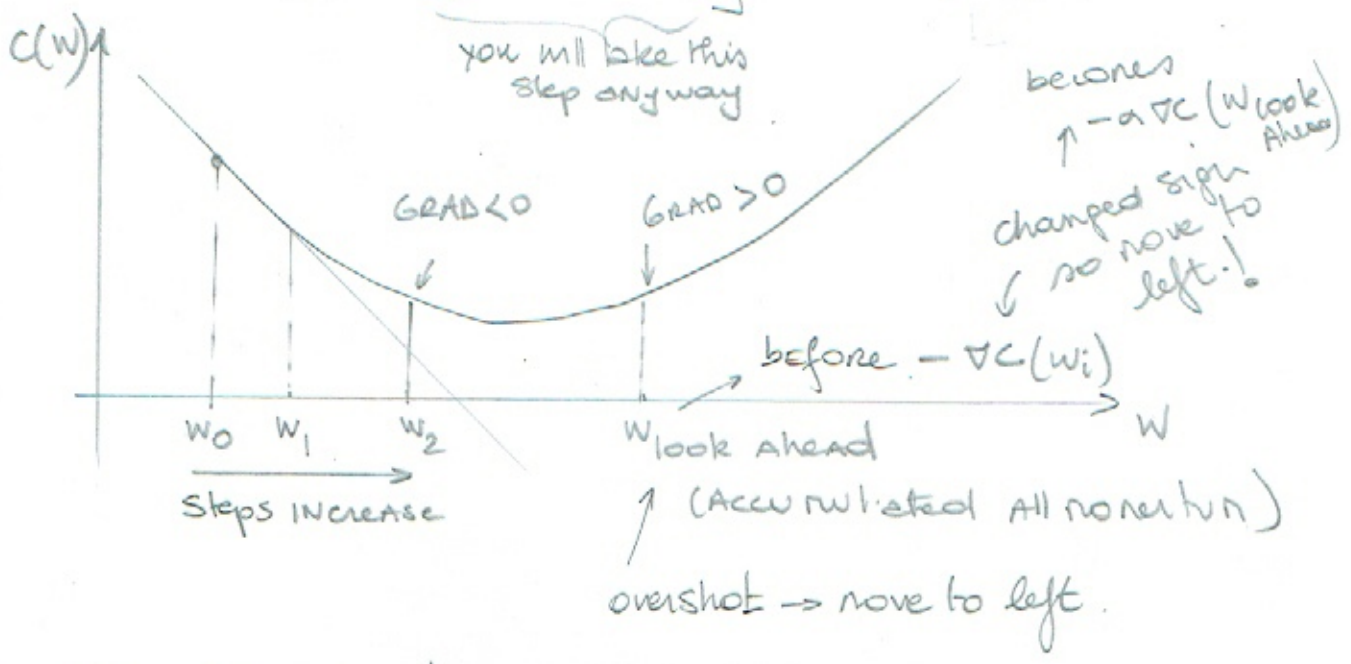 C(W)
you will take this
step anyway
becomes
-α∇C(W look
Ahead)
GRAD<0
GRAD>0
changed sign
so move to
left.!
before - ∇C(wi)
W0 W1 W2
W look Ahead
W
Steps INCREASE
(Accumulated All momentum)
overshot → move to left.